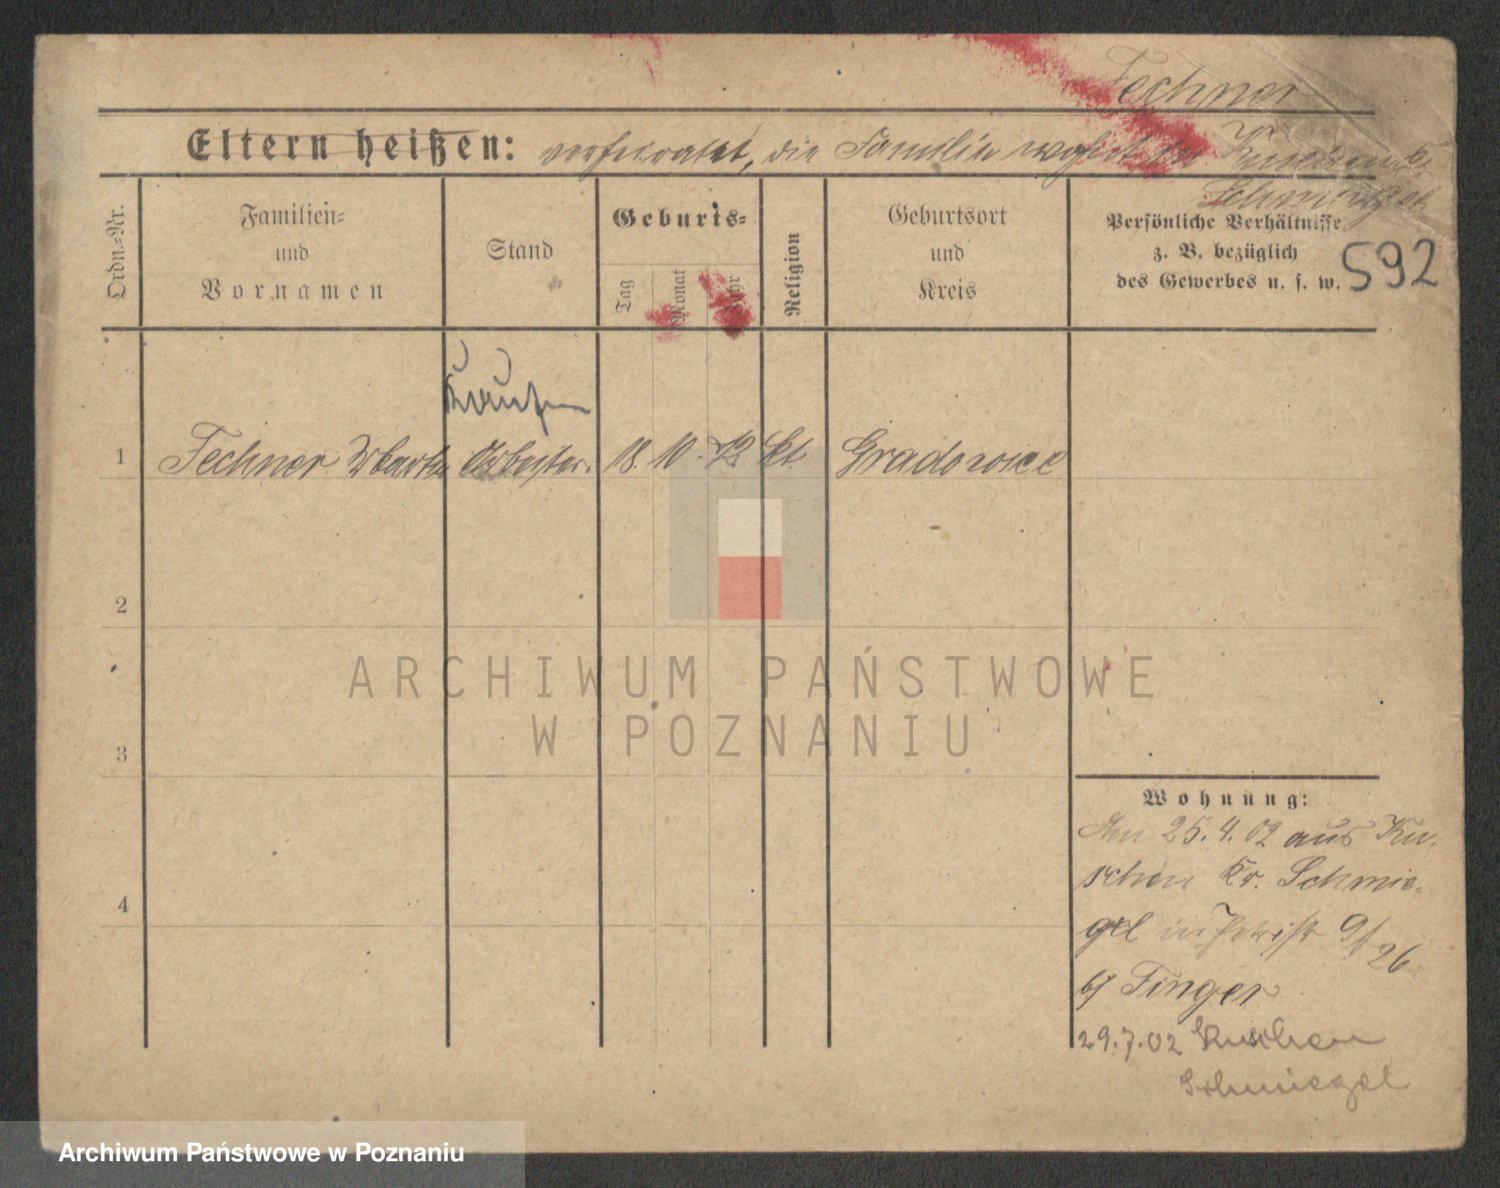 Fechner
Eltern heißen: verheiratet, die Familie wohnt in Kuschen Kr.
Schmiegel
Ordn.=Nr.
Familien=
und
Vornamen
Stand
Geburts=
Tag
Monat
Jahr
Religion
Geburtsort
und
Kreis
Persönliche Verhältnisse
z. B. bezüglich
des Gewerbes u. s. w.
592
1 Fechner Arbeiter. 18. 10. 72 kt. Gradowice
2
3
4
Wohnung:
Am 25. 4. 02 aus Ku-
schen Kr. Schmie-
gel in 9/26
b/ Finger
29.7.02 Kuschen
Schmiegel
ARCHIWUM PAŃSTWOWE
W POZNANIU
Archiwum Państwowe w Poznaniu